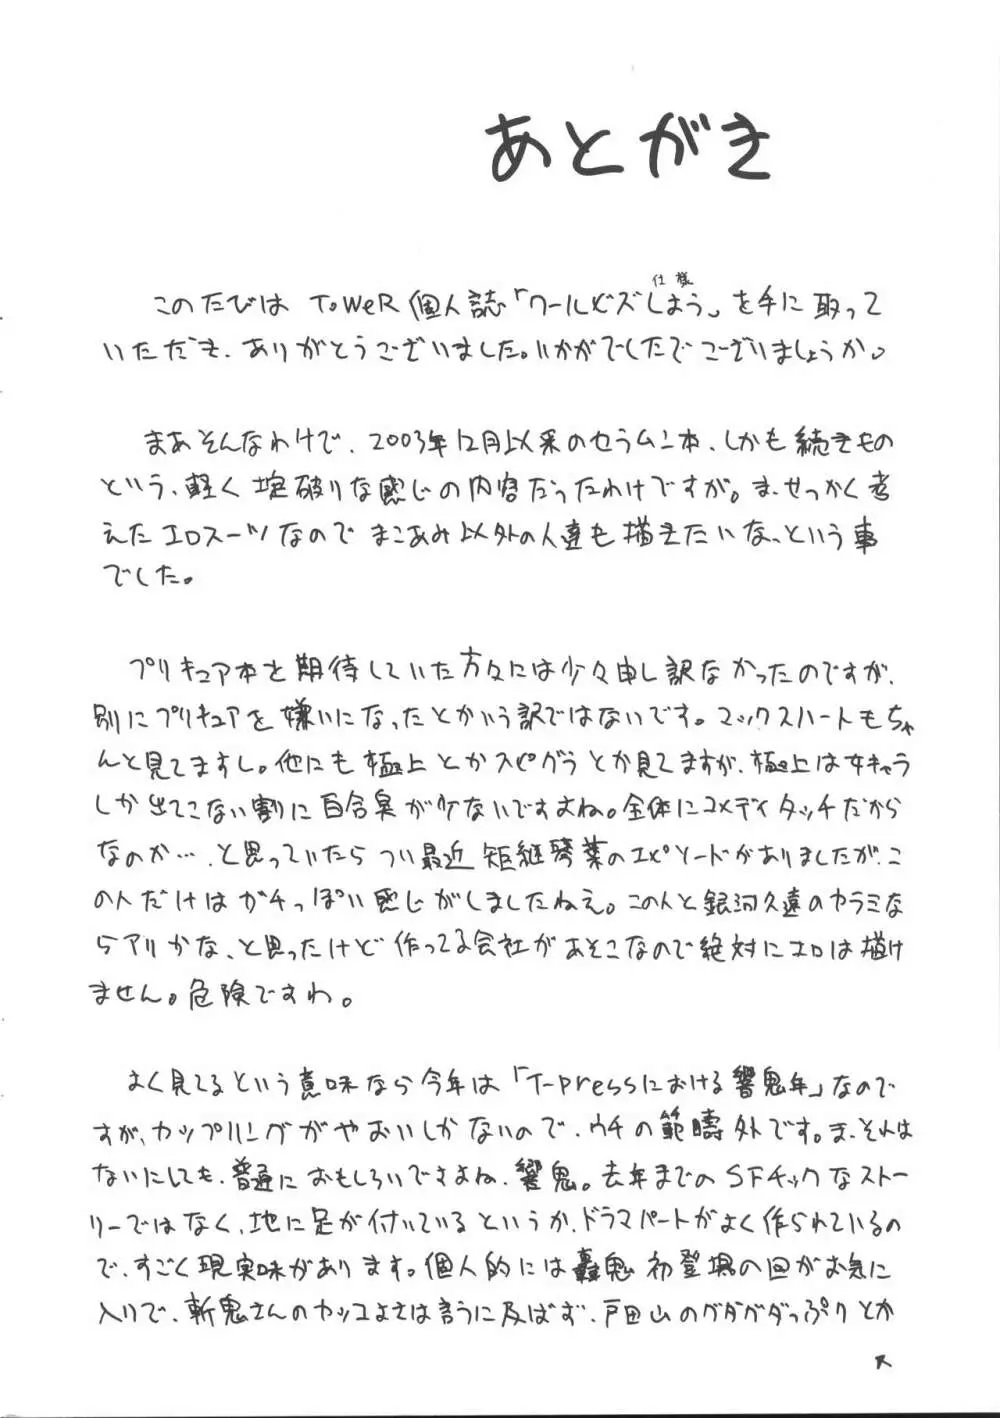 あとがき
このたびは ToWeR個人誌「ワールドズしよう」を手に取って
仕様
いただき、ありがとうございました。いかがでしたでございましょうか。
まあそんなわけで、2003年12月以来のセラムン本、しかも続きもの
という、軽く掟破りな感じの内容だったわけですが。ま、せっかく考
えたエロスーツなのでまこあみ以外の人達も描きたいなっという事
でした。
プリキュア本を期待していた方々には少々申し訳なかったのですが、
別にプリキュアを嫌いになったとかいう訳ではないです。マックスハートもちゃ
んと見てますし。他にも極上とかスピグラとか見てますが、極上は女キャラ
しか出てこない割に百合臭がケないですよね。全体にコメディタッチだから
なのか…、と思っていたらつい最近矩継琴葉のエピソードがありましたが、こ
の人だけはガチっぽい感じがしましたねえ。この人と銀河久遠のカラミな
らアリかな、と思ったけど作ってる会社があそこなので絶対にエロは描け
ません。危険ですわ。
よく見てるという意味なら今年は「T-pressにおける響鬼年」なので
すが、カップリングがやおいしかないので、ウチの範疇外です。ま、それは
ないにしても、普通におもしろいですよね、響鬼。去年までのSFチックなストー
リーではなく、地に足が付いているというか、ドラマパートがよく作られているの
で、すごく現実味があります。個人的には轟鬼初登場の回がお気に
入りで、斬鬼さんのカッコよさは言うに及ばず、戸田山のグダグダっぷりとか